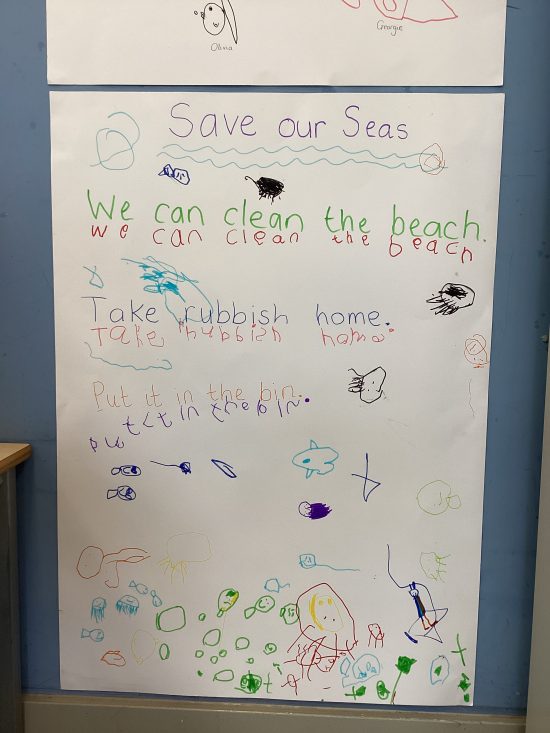 Olivia
Georgia
Save our Seas
We can clean the beach.
we can clean the beach
Take rubbish home.
Take rubbish home.
Put it in the bin.
put it in the bin.